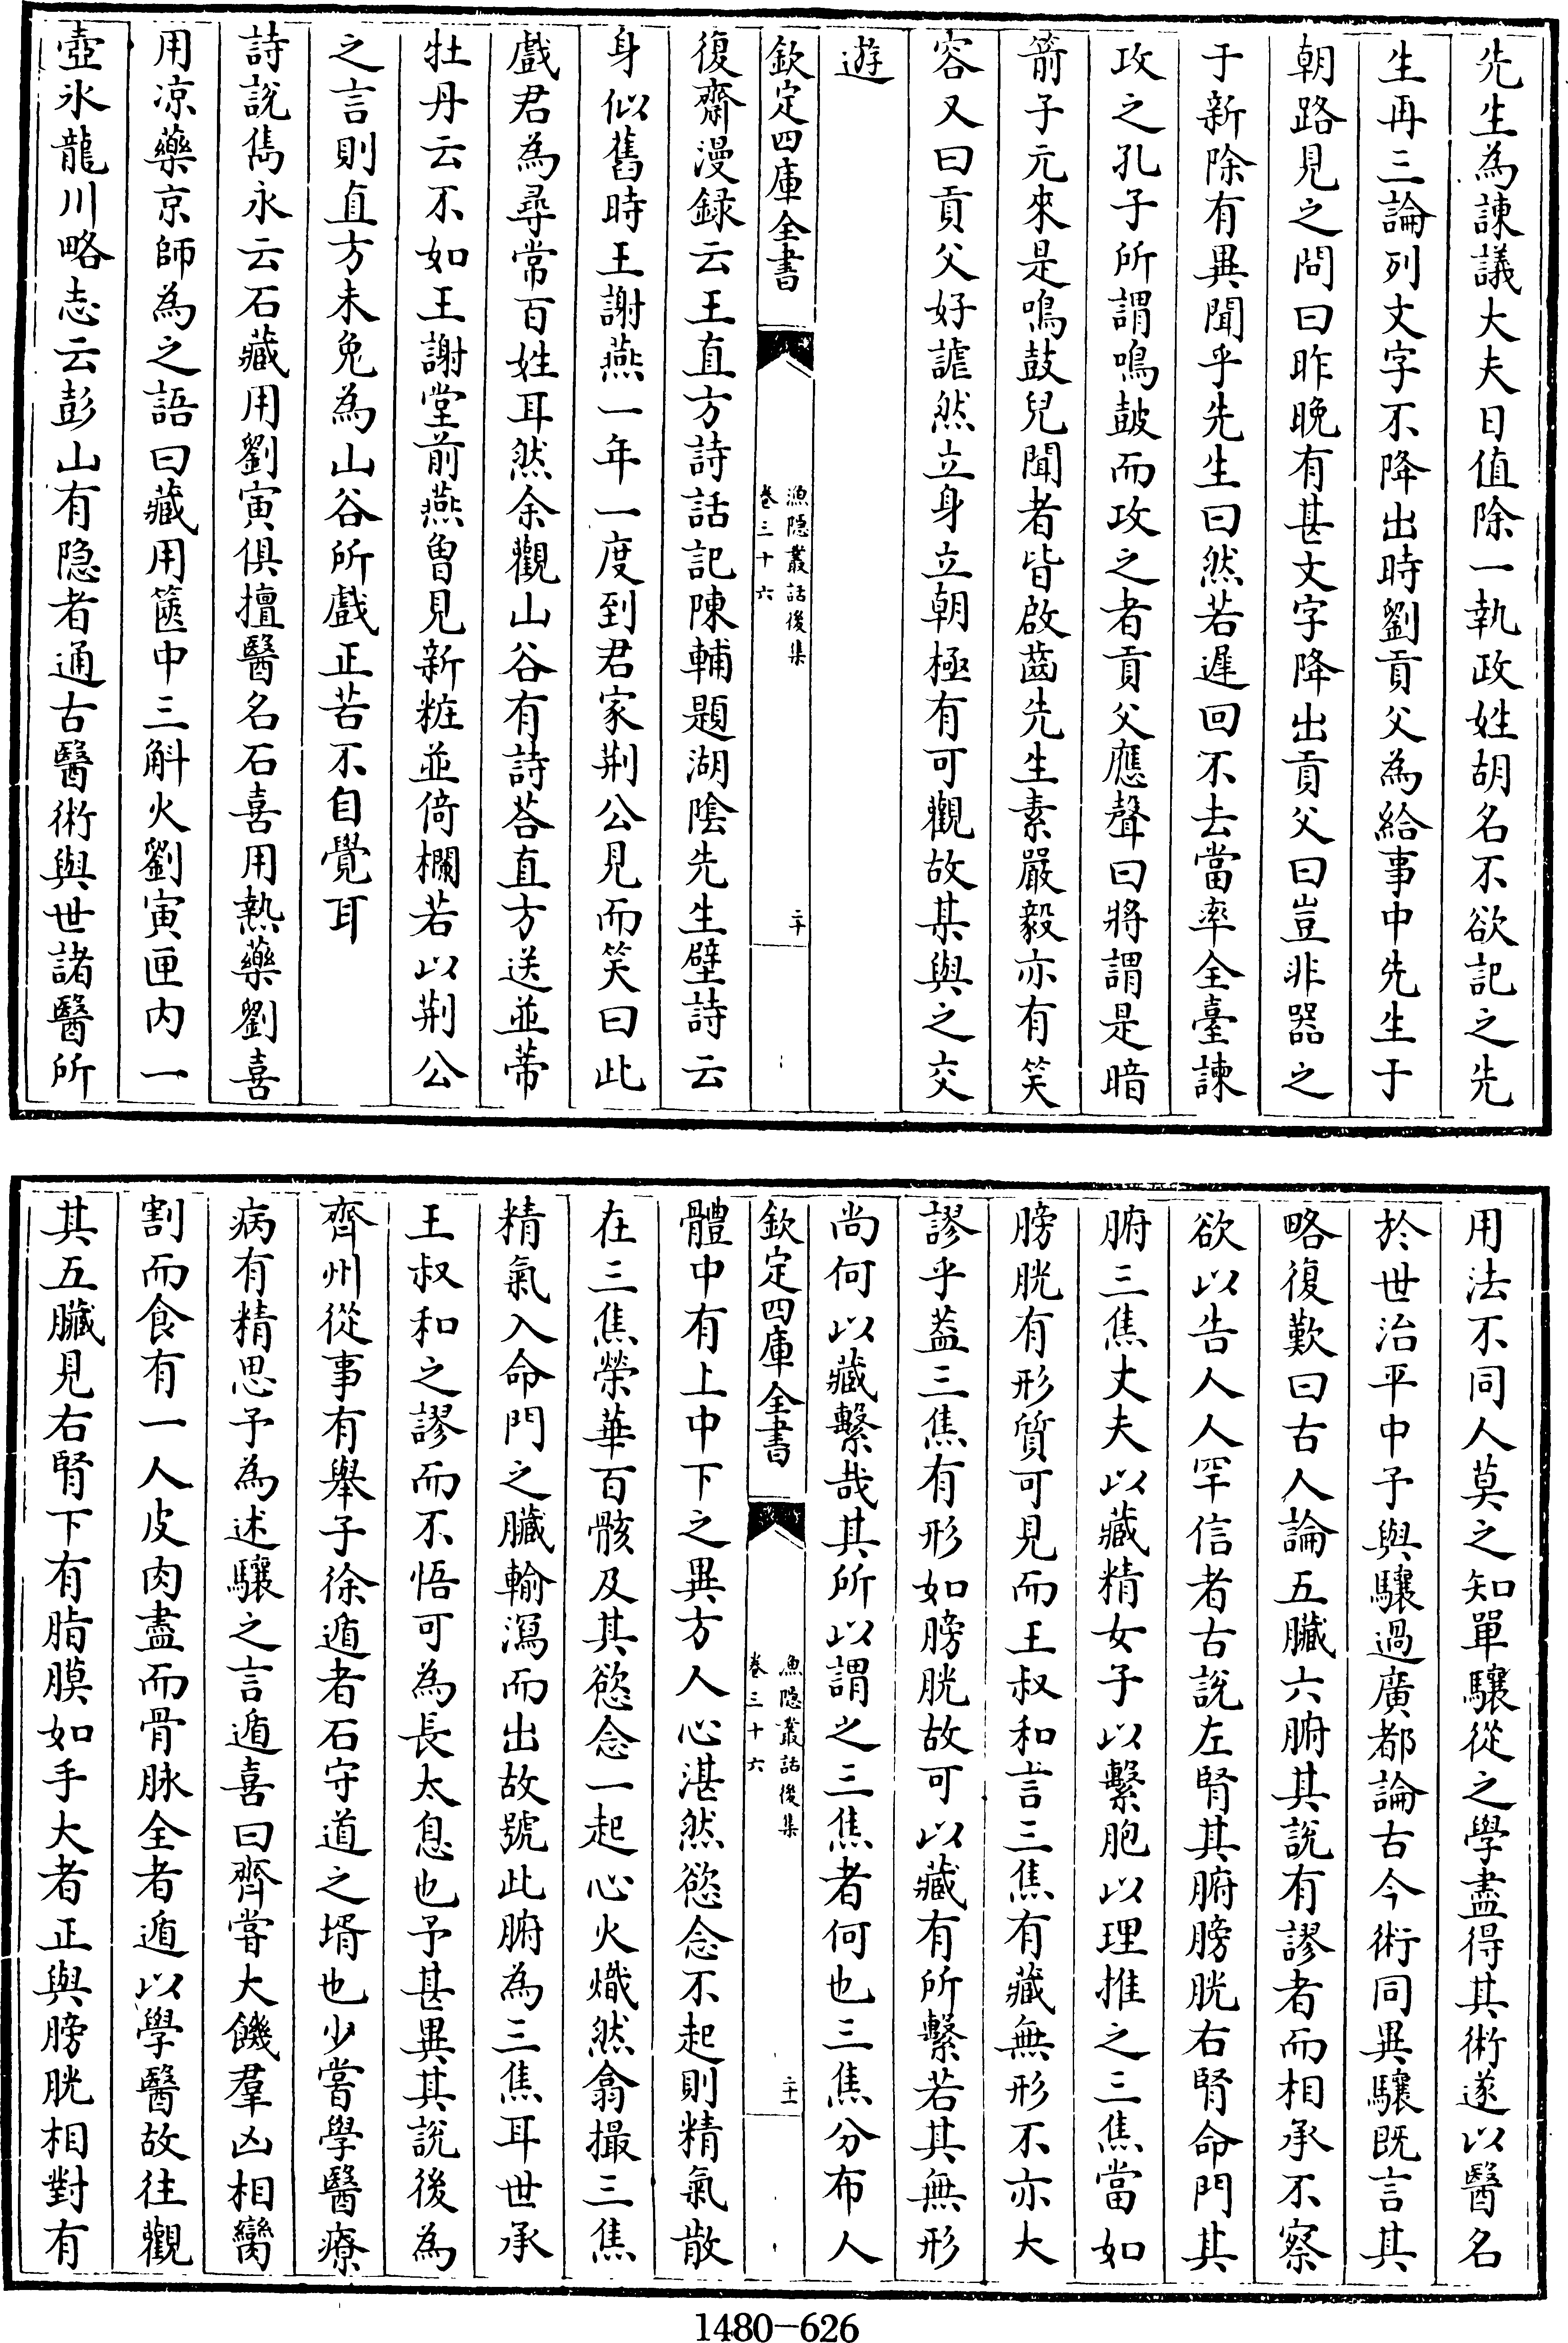 先生為諫議大夫日值除一執政姓胡名不欲記之先
生再三論列文字不降出時劉貢父為給事中先生于
朝路見之問曰昨晚有甚文字降出貢父曰豈非器之
于新除有異聞乎先生曰然若遲回不去當率全臺諫
攻之孔子所謂鳴鼓而攻之者貢父應聲曰將謂是暗
箭子元來是鳴鼓兒聞者皆啟齒先生素嚴毅亦有笑
容又曰貢父好謔然立身立朝極有可觀故某與之交
遊
欽定四庫全書
漁隱叢話後集
卷三十六
二十
復齋漫録云王直方詩話記陳輔題湖陰先生壁詩云
身似舊時王謝燕一年一度到君家荆公見而笑曰此
戲君為尋常百姓耳然余觀山谷有詩荅直方送並蒂
牡丹云不如王謝堂前燕曾見新粧並倚欄若以荆公
之言則直方未免為山谷所戲正若不自覺耳
詩說雋永云石藏用劉寅俱擅醫名石喜用熱藥劉喜
用凉藥京師為之語曰藏用篋中三斛火劉寅匣内一
壺氷龍川略志云彭山有隐者通古醫術與世諸醫所
用法不同人莫之知單驤從之學盡得其術遂以醫名
於世治平中予與驤過廣都論古今術同異驤既言其
略復歎曰古人論五臓六腑其說有謬者而相承不察
欲以告人人罕信者古說左腎其腑膀胱右腎命門其
腑三焦丈夫以藏精女子以繫胞以理推之三焦當如
膀胱有形質可見而王叔和言三焦有藏無形不亦大
謬乎葢三焦有形如膀胱故可以藏有所繫若其無形
尚何以藏繫哉其所以謂之三焦者何也三焦分布人
欽定四庫全書
漁隱叢話後集
卷三十六
二十一
體中有上中下之異方人心湛然慾念不起則精氣散
在三焦榮華百骸及其慾念一起心火熾然翕撮三焦
精氣入命門之臓輸瀉而出故號此腑為三焦耳世承
王叔和之謬而不悟可為長太息也予甚異其說後為
齊州從事有舉子徐遁者石守道之壻也少嘗學醫療
病有精思予為述驤之言遁喜曰齊嘗大饑羣凶相臠
割而食有一人皮肉盡而骨脉全者遁以學醫故往觀
其五臓見右腎下有脂膜如手大者正與膀胱相對有
1480-626